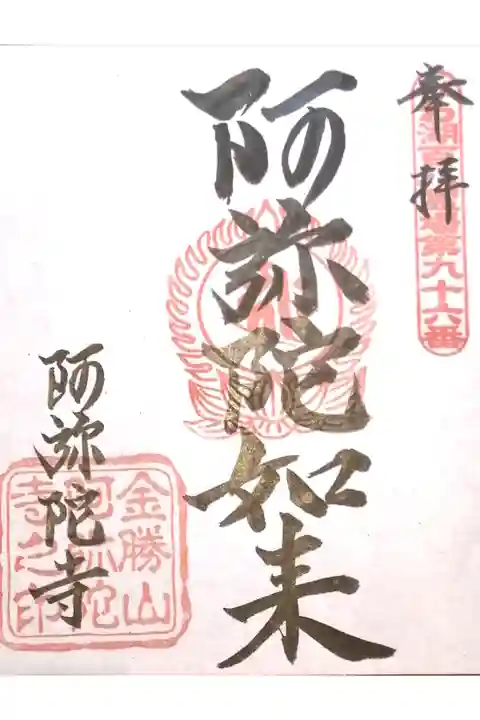 奉拝
湖百八霊場第九十六番
阿弥陀如来
阿弥陀寺
金勝山
阿弥陀
寺之印